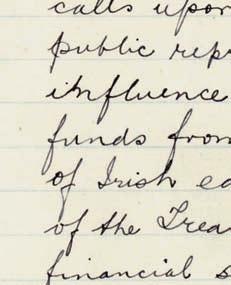 calls upon
public repr
influence
funds from
of Irish ed
of the Trea
financial s